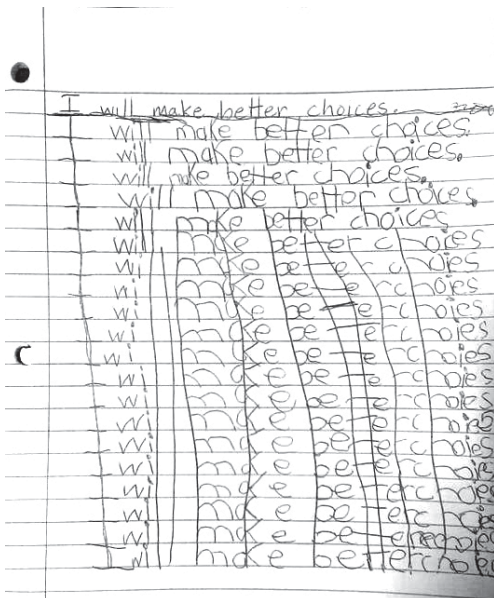 I will make better choices.
I will make better choices.
I will make better choices.
I will make better choices.
I will make better choices.
I will make better choices
I will make better choies
I will make better choies
I will make better choies
I will make better choies
I will make better choies
I will make better choies
I will make better choies
I will make better choies
I will make better choies
I will make better choies
I will make better choies
I will make better choies
I will make better choies
I will make better choies
I will make better choies